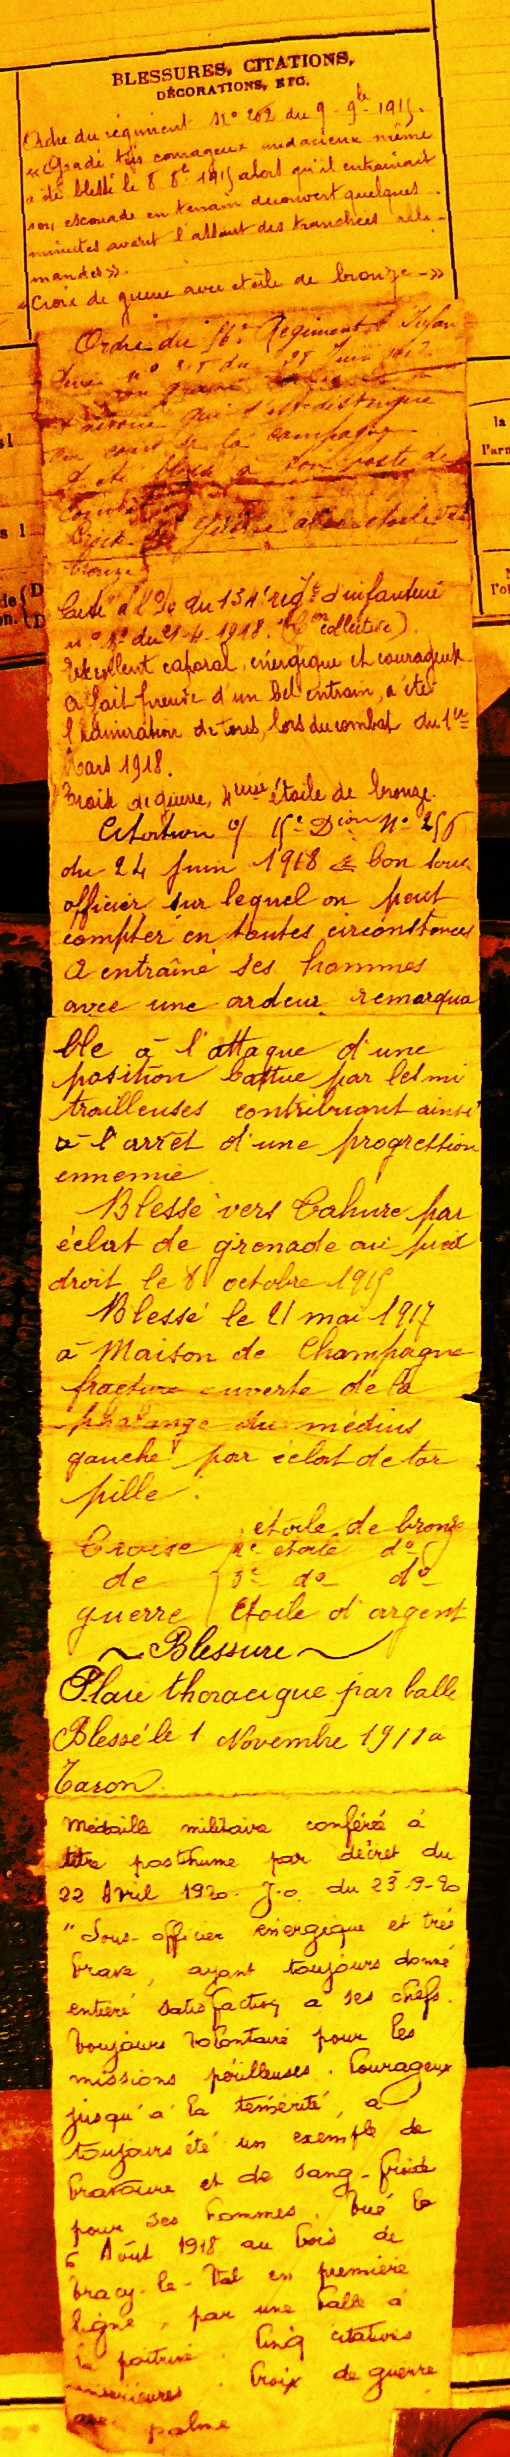 BLESSURES, CITATIONS,
DÉCORATIONS, ETC.
Ordre du régiment N° 202 du 9-9bre 1915.
«Gradé très courageux audacieux même
a été blessé le 8 8bre 1915 alors qu'il entrainait
son escouade en terrain découvert quelques
minutes avant l'assaut des tranchées alle-
mandes».
«Croix de guerre avec etoile de bronze -»
Ordre du 16e Régiment d'Infan
n° du Juin
qui s'est distingué
au cours de la campagne
a été blessé à son poste de
combat
Croix de guerre
bronze
Cité à l'O du 134e régt d'infanterie
n° du 21-4-1918. (Con collective)
Excellent caporal, énergique et courageux
a fait preuve d'un bel entrain, a été
l'admiration de tous, lors du combat du 1er
Mars 1918.
Croix de guerre, étoile de bronze.
Citation 15e Dion N° 256
du 24 Juin 1918 bon sous
officier sur lequel on peut
compter en toutes circonstances
a entraîné ses hommes
avec une ardeur remarqua
ble à l'attaque d'une
position battue par les mi
trailleuses contribuant ainsi
à l'arrêt d'une progression
ennemie
Blessé vers Tahure par
éclat de grenade au pied
droit le 8 octobre 1915
Blessé le 21 mai 1917
à Maison de Champagne
fracture ouverte de la
phalange du médius
gauche par éclat de tor
pille.
etoile de bronze
Croise 2e etoile do
de 3e do do
guerre Etoile d'argent
~ Blessure ~
Plaie thoracique par balle
Blessé le 1 Novembre 1911 a
Taron
Médaille militaire conférée à
titre posthume par décret du
22 Avril 1920. J.O. du 23-9-20
"Sous-officier énergique et très
brave, ayant toujours donné
entière satisfaction a ses chefs.
Toujours volontaire pour les
missions périlleuses. Courageux
jusqu'à la témérité, a
toujours été un exemple de
bravoure et de sang-froid
pour ses hommes. Tué le
6 Août 1918 au bois de
Tracy-le-Val en première
ligne, par une balle à
la poitrine. Cinq citations
antérieures. Croix de guerre
avec palme